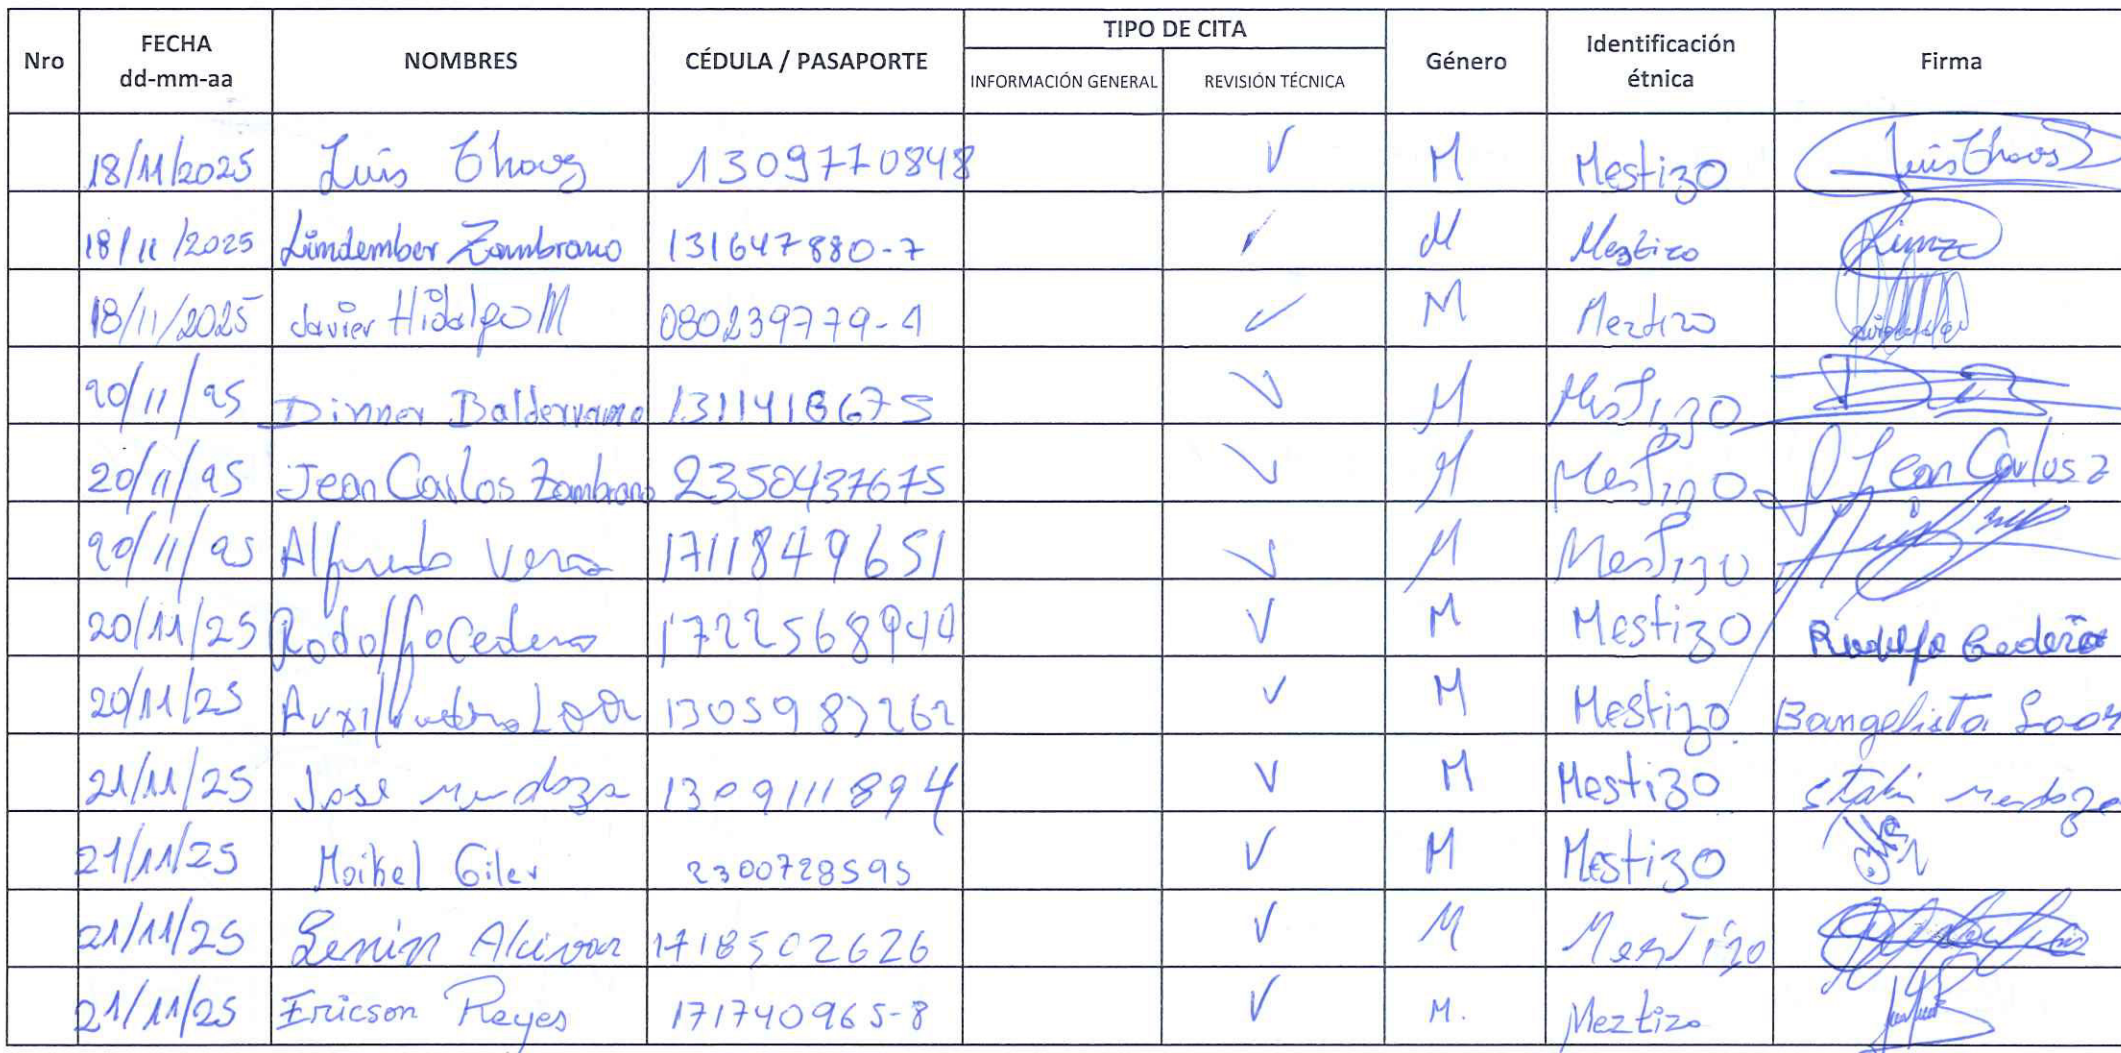 Nro FECHA dd-mm-aa NOMBRES CÉDULA / PASAPORTE TIPO DE CITA INFORMACIÓN GENERAL REVISIÓN TÉCNICA Género Identificación étnica Firma
18/11/2025 Luis Chavez 1309770848 √ M Mestizo Luis Chavez
18/11/2025 Lindember Zambrano 131647880-7 ✓ M Meztizo Limza
18/11/2025 Javier Hidalgo M 080239779-1 ✓ M Meztizo
20/11/25 Dinner Balderramo 1311418675 √ M Mestizo
20/11/25 Jean Carlos Zambrano 2350437675 √ M Mestizo Jean Carlos Z
20/11/25 Alfredo Vera 1711849651 √ M Mestizo
20/11/25 Rodolfo Cedeno 1722568940 √ M Mestizo Rodolfo Cedeño
20/11/25 Loor 1305987262 √ M Mestizo Bangelista Loor
21/11/25 José mendoza 1309111894 √ M Mestizo stalin mendoza
21/11/25 Maikel Giler 2300728595 √ M Mestizo
21/11/25 Lenin Alcivar 1718502626 √ M Mestizo
21/11/25 Ericson Reyes 171740965-8 √ M. Meztizo